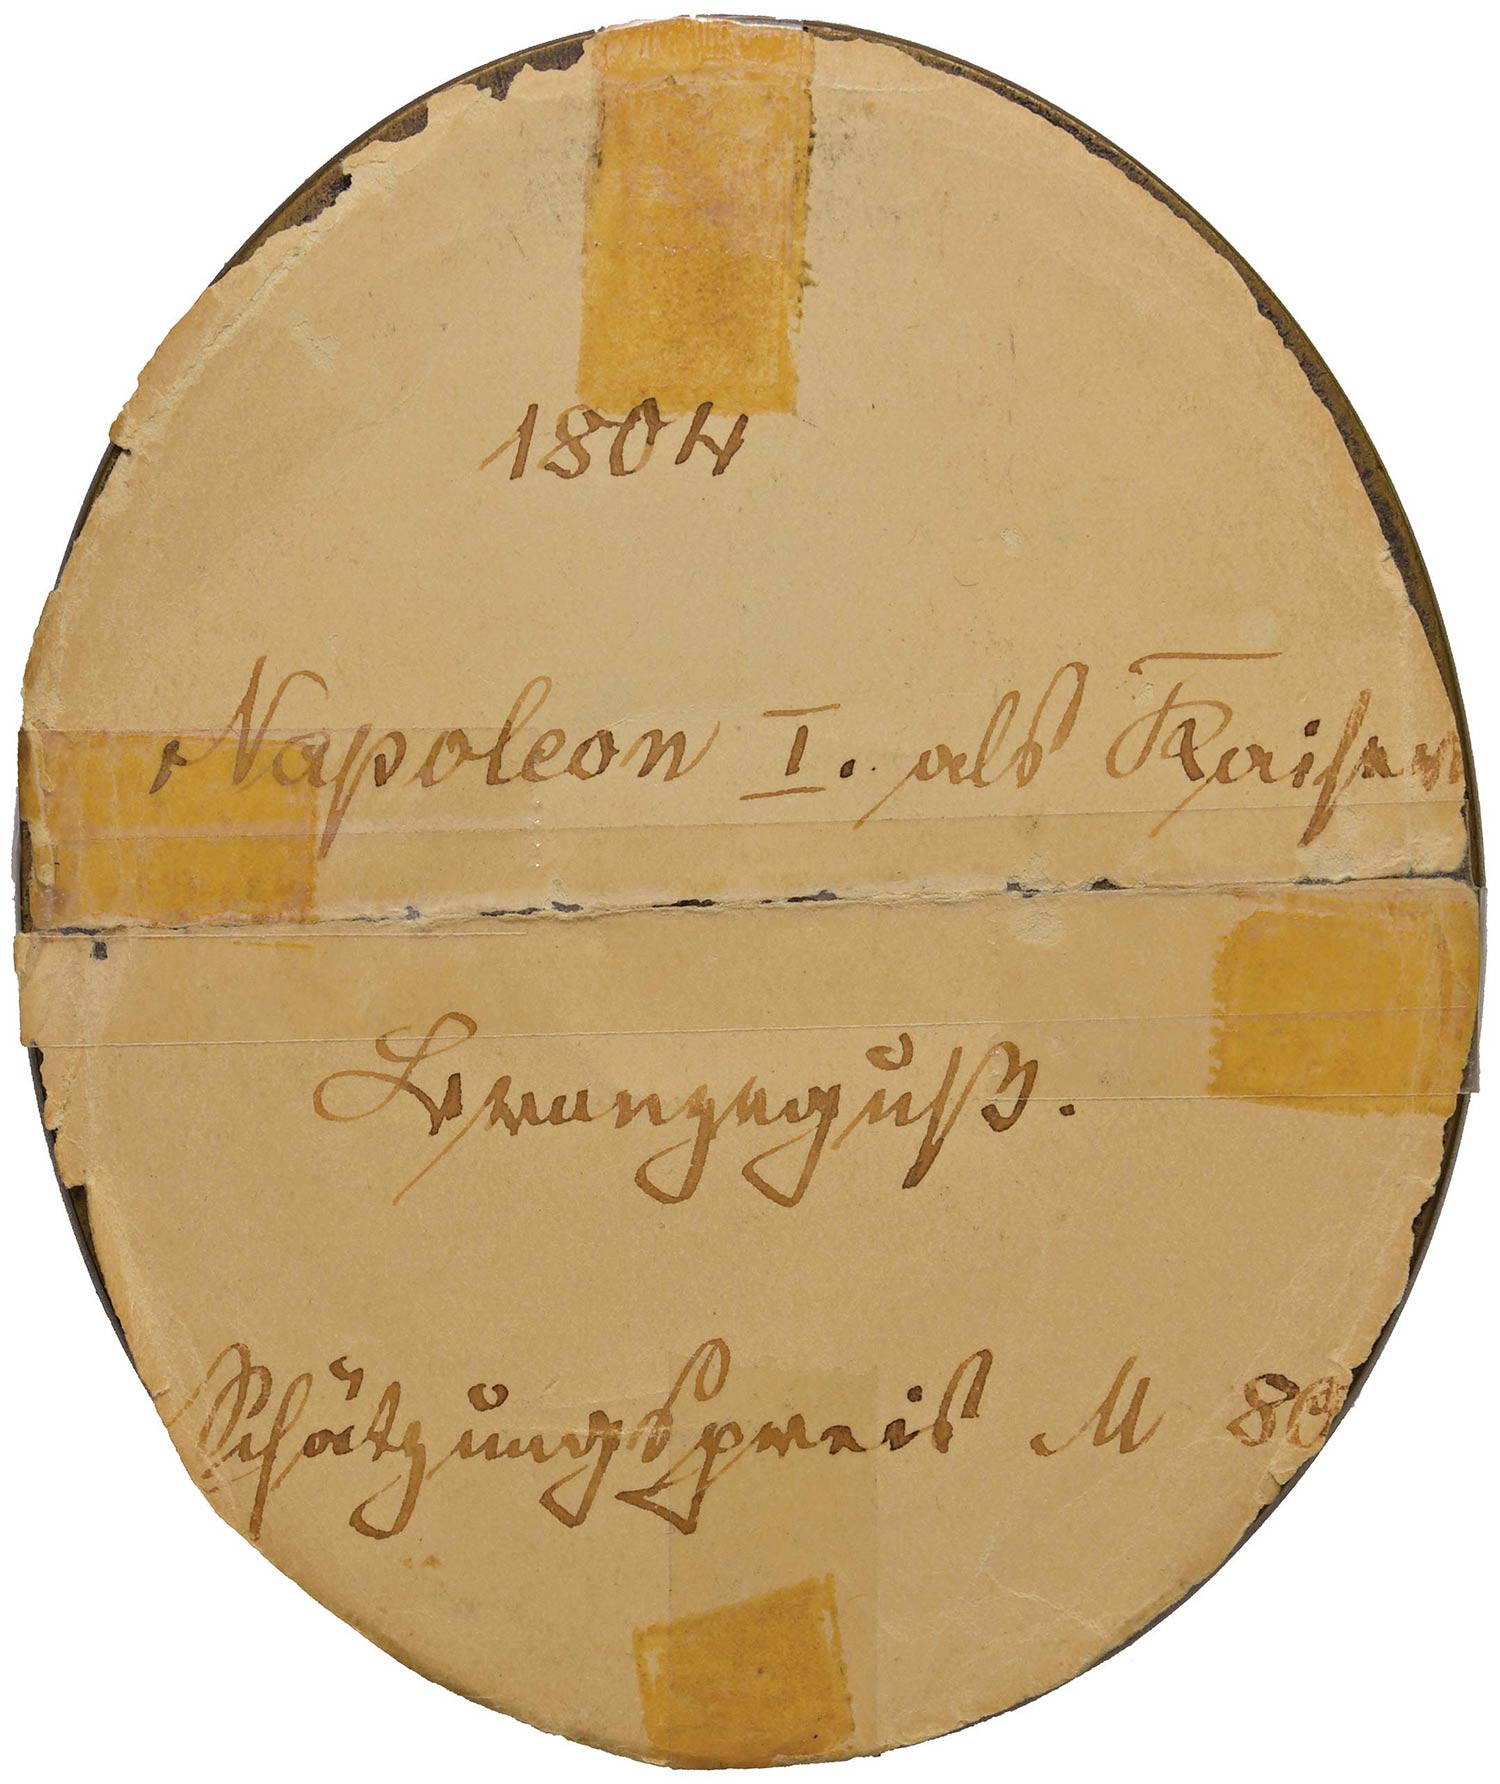 1804
Napoleon I. als Kaiser
Bronzeguß.
Schätzungspreis M 80